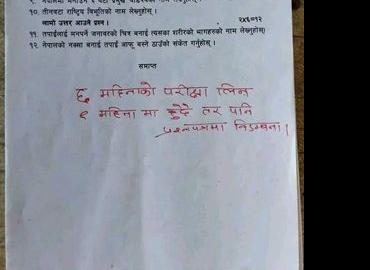 ९. नेपालमा मनाइने ६ वटा प्रमुख चाडपर्वको नाम लेख्नुहोस् ।
१०. तीनवटा राष्ट्रिय विभूतिको नाम लेख्नुहोस् ।
लामो उत्तर आउने प्रश्न । २x६=१२
११. तपाईंलाई मनपर्ने जनावरको चित्र बनाई त्यसका शरीरको भागहरुको नाम लेख्नुहोस्।
१२. नेपालको नक्सा बनाई तपाईं आफू बस्ने ठाउँको संकेत गर्नुहोस् ।
समाप्त
६ महिनाको परीक्षा लिन
९ महिना मा कुदै तर पनि
प्रश्नपत्रमा विडम्बना।